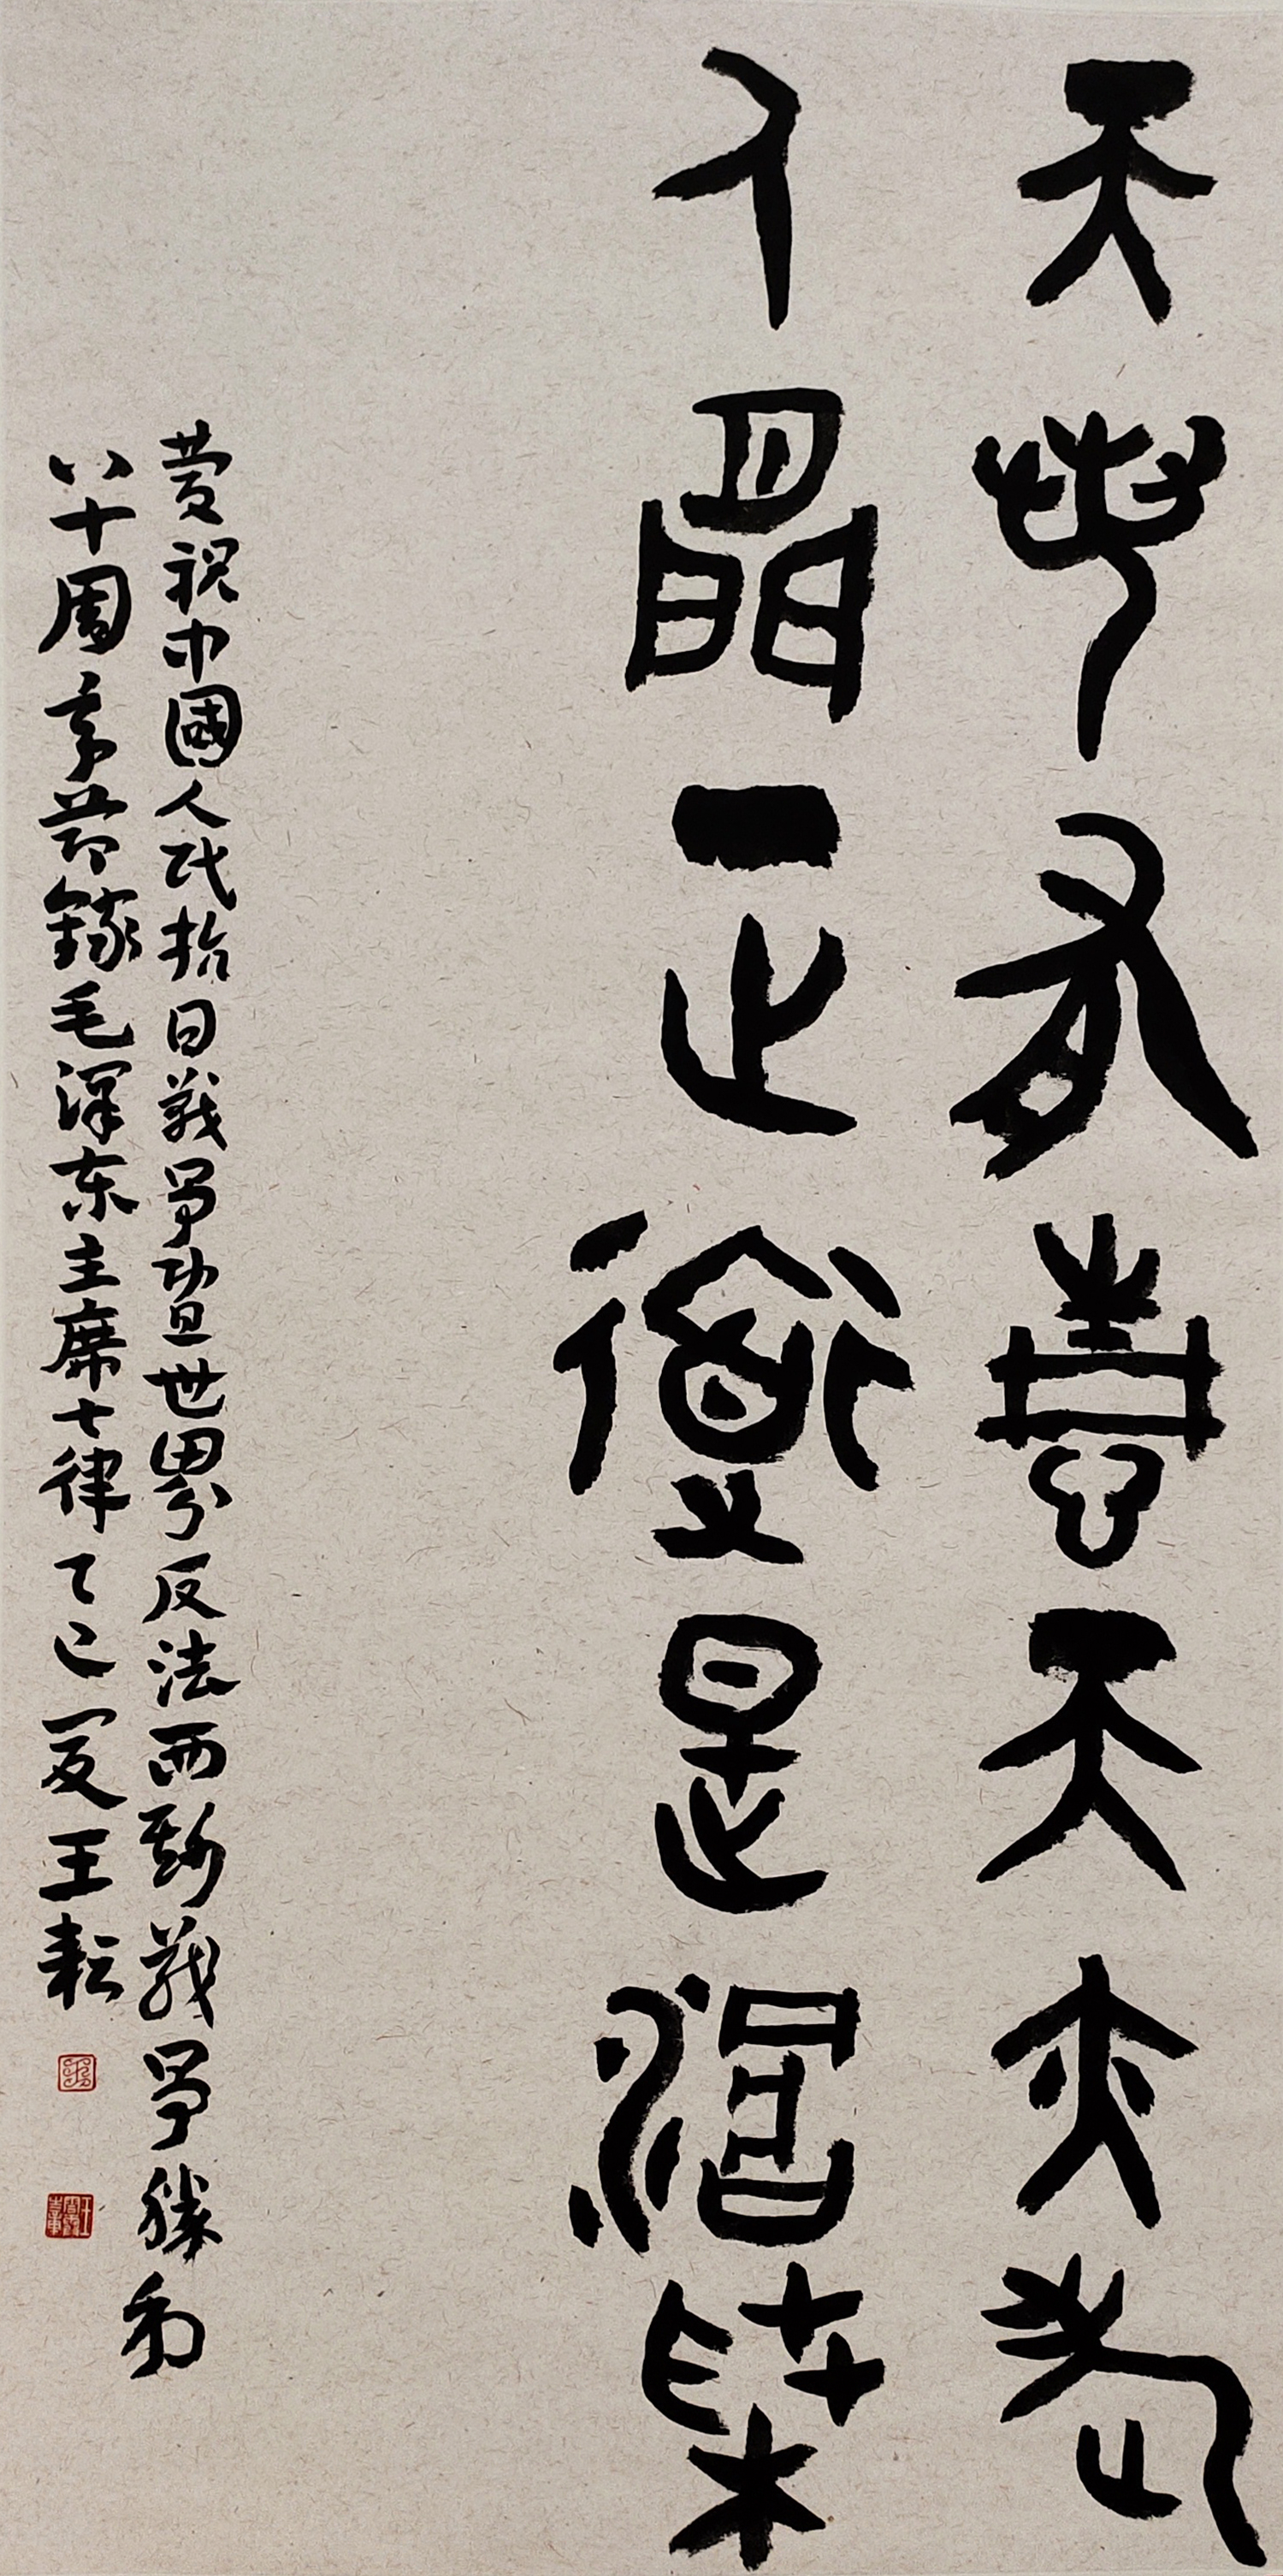 天若有情天亦老
人間正道是滄桑
慶祝中國人民抗日戰爭暨世界反法西斯戰爭勝利
八十周年節錄毛澤东主席七律乙巳夏王耘